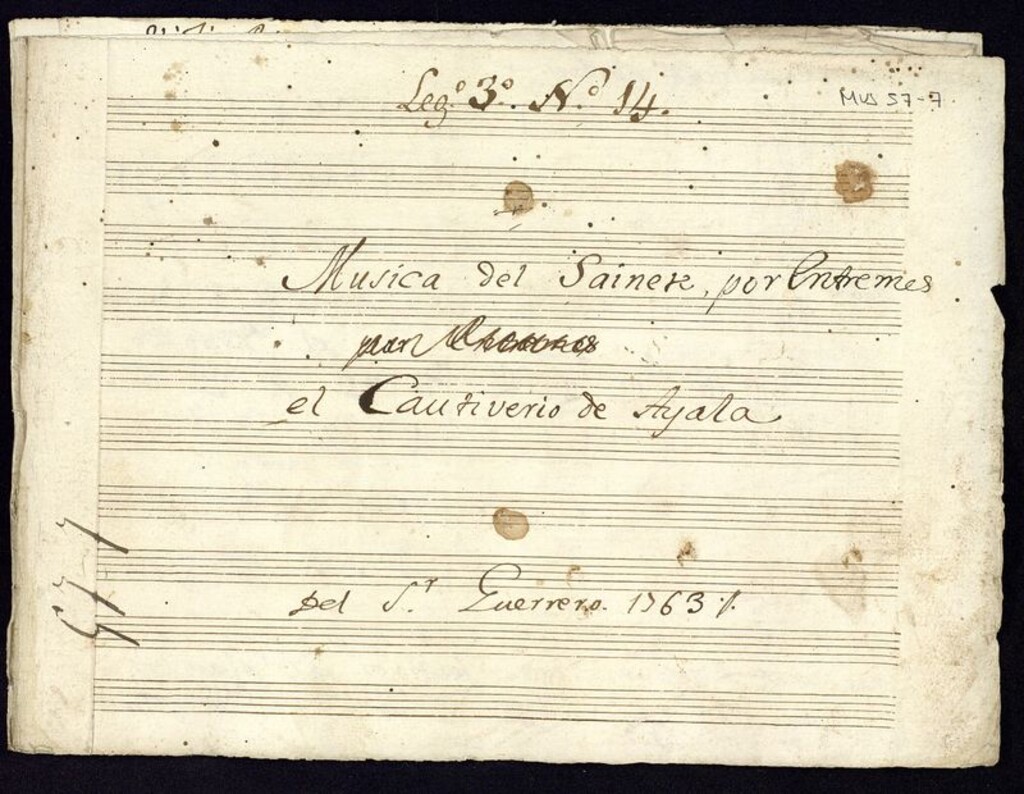 Leg.º 3.º N.º 14.
MUS 57-7
Musica del Sainete, por Entremes
por
el Cautiverio de Ayala
Del S.r Guerrero. 1763 ./.
57-7